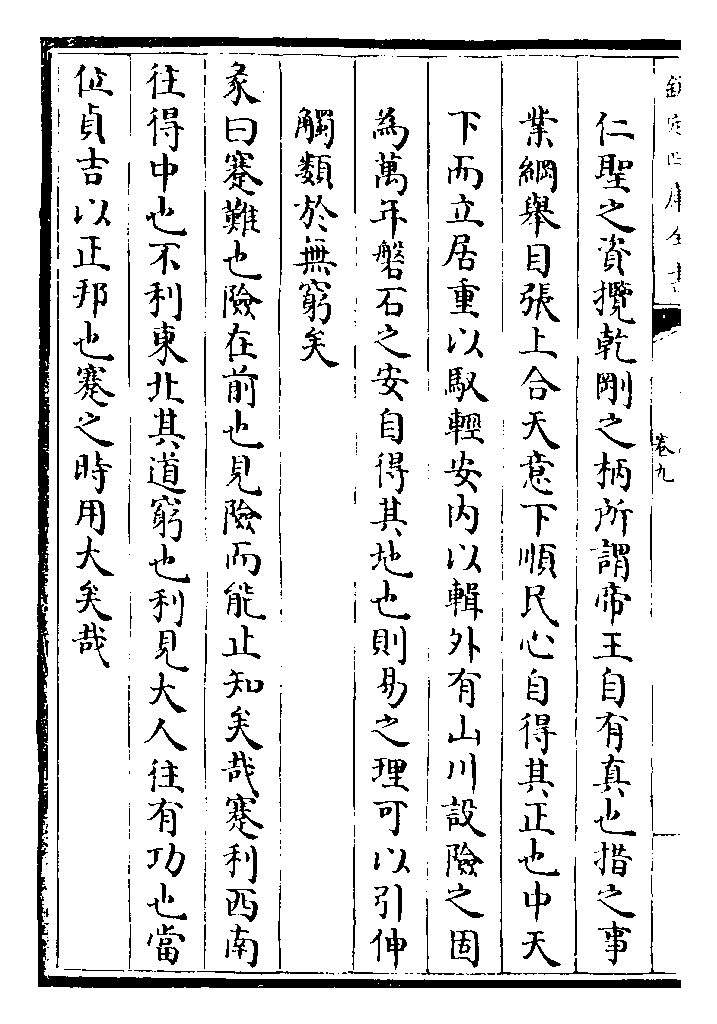 欽定四庫全書
卷九
仁聖之資攬乾剛之柄所謂帝王自有真也措之事
業綱舉目張上合天意下順民心自得其正也中天
下而立居重以馭輕安内以輯外有山川設險之固
為萬年磐石之安自得其地也則易之理可以引伸
觸類於無窮矣
彖曰蹇難也險在前也見險而能止知矣哉蹇利西南
往得中也不利東北其道窮也利見大人往有功也當
位貞吉以正邦也蹇之時用大矣哉